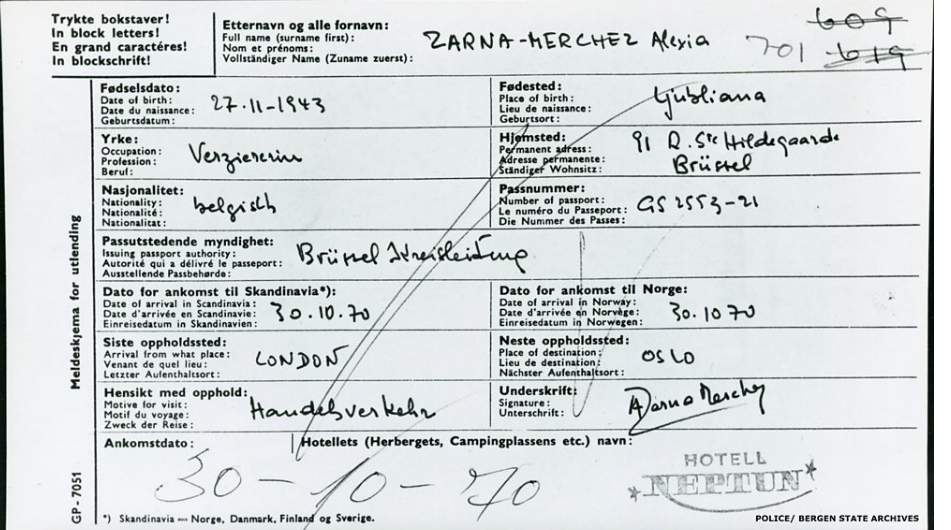 Trykte bokstaver!
In block letters!
En grand caractéres!
In blockschrift!
Etternavn og alle fornavn:
Full name (surname first):
Nom et prénoms:
Vollständiger Name (Zuname zuerst):
ZARNA-MERCHEZ Alexia
701
609
619
Fødselsdato:
Date of birth:
Date du naissance:
Geburtsdatum:
27·11-1943
Fødested:
Place of birth:
Lieu de naissance:
Geburtsort:
Ljubliana
Yrke:
Occupation:
Profession:
Beruf:
Verziererin
Hjemsted:
Permanent adress:
Adresse permanente:
Ständiger Wohnsitz:
91 R. Ste Hildegaarde
Brüssel
Nasjonalitet:
Nationality:
Nationalité:
Nationalitat:
belgisch
Passnummer:
Number of passport:
Le numéro du Passeport:
Die Nummer des Passes:
GS 2553-21
Passutstedende myndighet:
Issuing passport authority:
Autorité qui a délivré le passeport:
Ausstellende Passbehørde:
Brüssel Kreisleitung
Dato for ankomst til Skandinavia*):
Date of arrival in Scandinavia:
Date d'arrivée en Scandinavie:
Einreisedatum in Skandinavien:
30.10.70
Dato for ankomst til Norge:
Date of arrival in Norway:
Date d'arrivée en Norvège:
Einreisedatum in Norwegen:
30.10 70
Siste oppholdssted:
Arrival from what place:
Venant de quel lieu:
Letzter Aufenthaltsort:
LONDON
Neste oppholdssted:
Place of destination:
Lieu de destination:
Nächster Aufenthaltsort:
OSLO
Hensikt med opphold:
Motive for visit:
Motif du voyage:
Zweck der Reise:
Handelsverkehr
Underskrift:
Signature:
Unterschrift:
AZarna Merchez
Ankomstdato:
30-10-70
Hotellets (Herbergets, Campingplassens etc.) navn:
HOTELL
NEPTUN
*) Skandinavia — Norge, Danmark, Finland og Sverige.
Meldeskjema for utlending
GP-7051
POLICE/ BERGEN STATE ARCHIVES